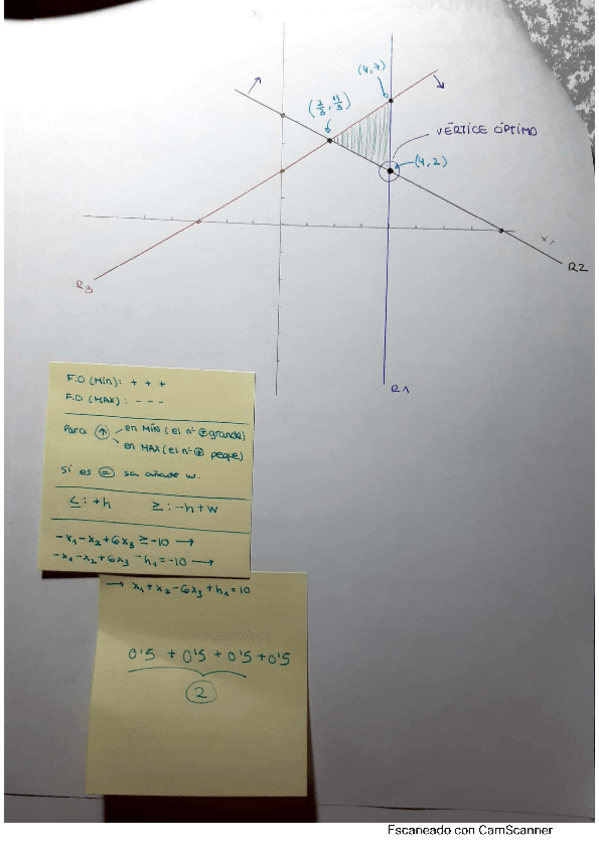 X₂
(4,7)
(2/3, 11/3)
VÉRTICE ÓPTIMO
(4,2)
X₁
R2
R3
R1
F.O (Mín): + + +
F.O (MAX): - - -
Para ↑ en MÍN (el nº ⊕ grande)
en MAX (el nº ⊕ peque)
Si es = se añade w.
≤: +h ≥: -h+w
-x₁-x₂+6x₃ ≥ -10 →
-x₁-x₂+6x₃ -h₁ = -10 →
→ x₁+x₂-6x₃+h₁=10
0'5 + 0'5 + 0'5 + 0'5
2
Escaneado con CamScanner